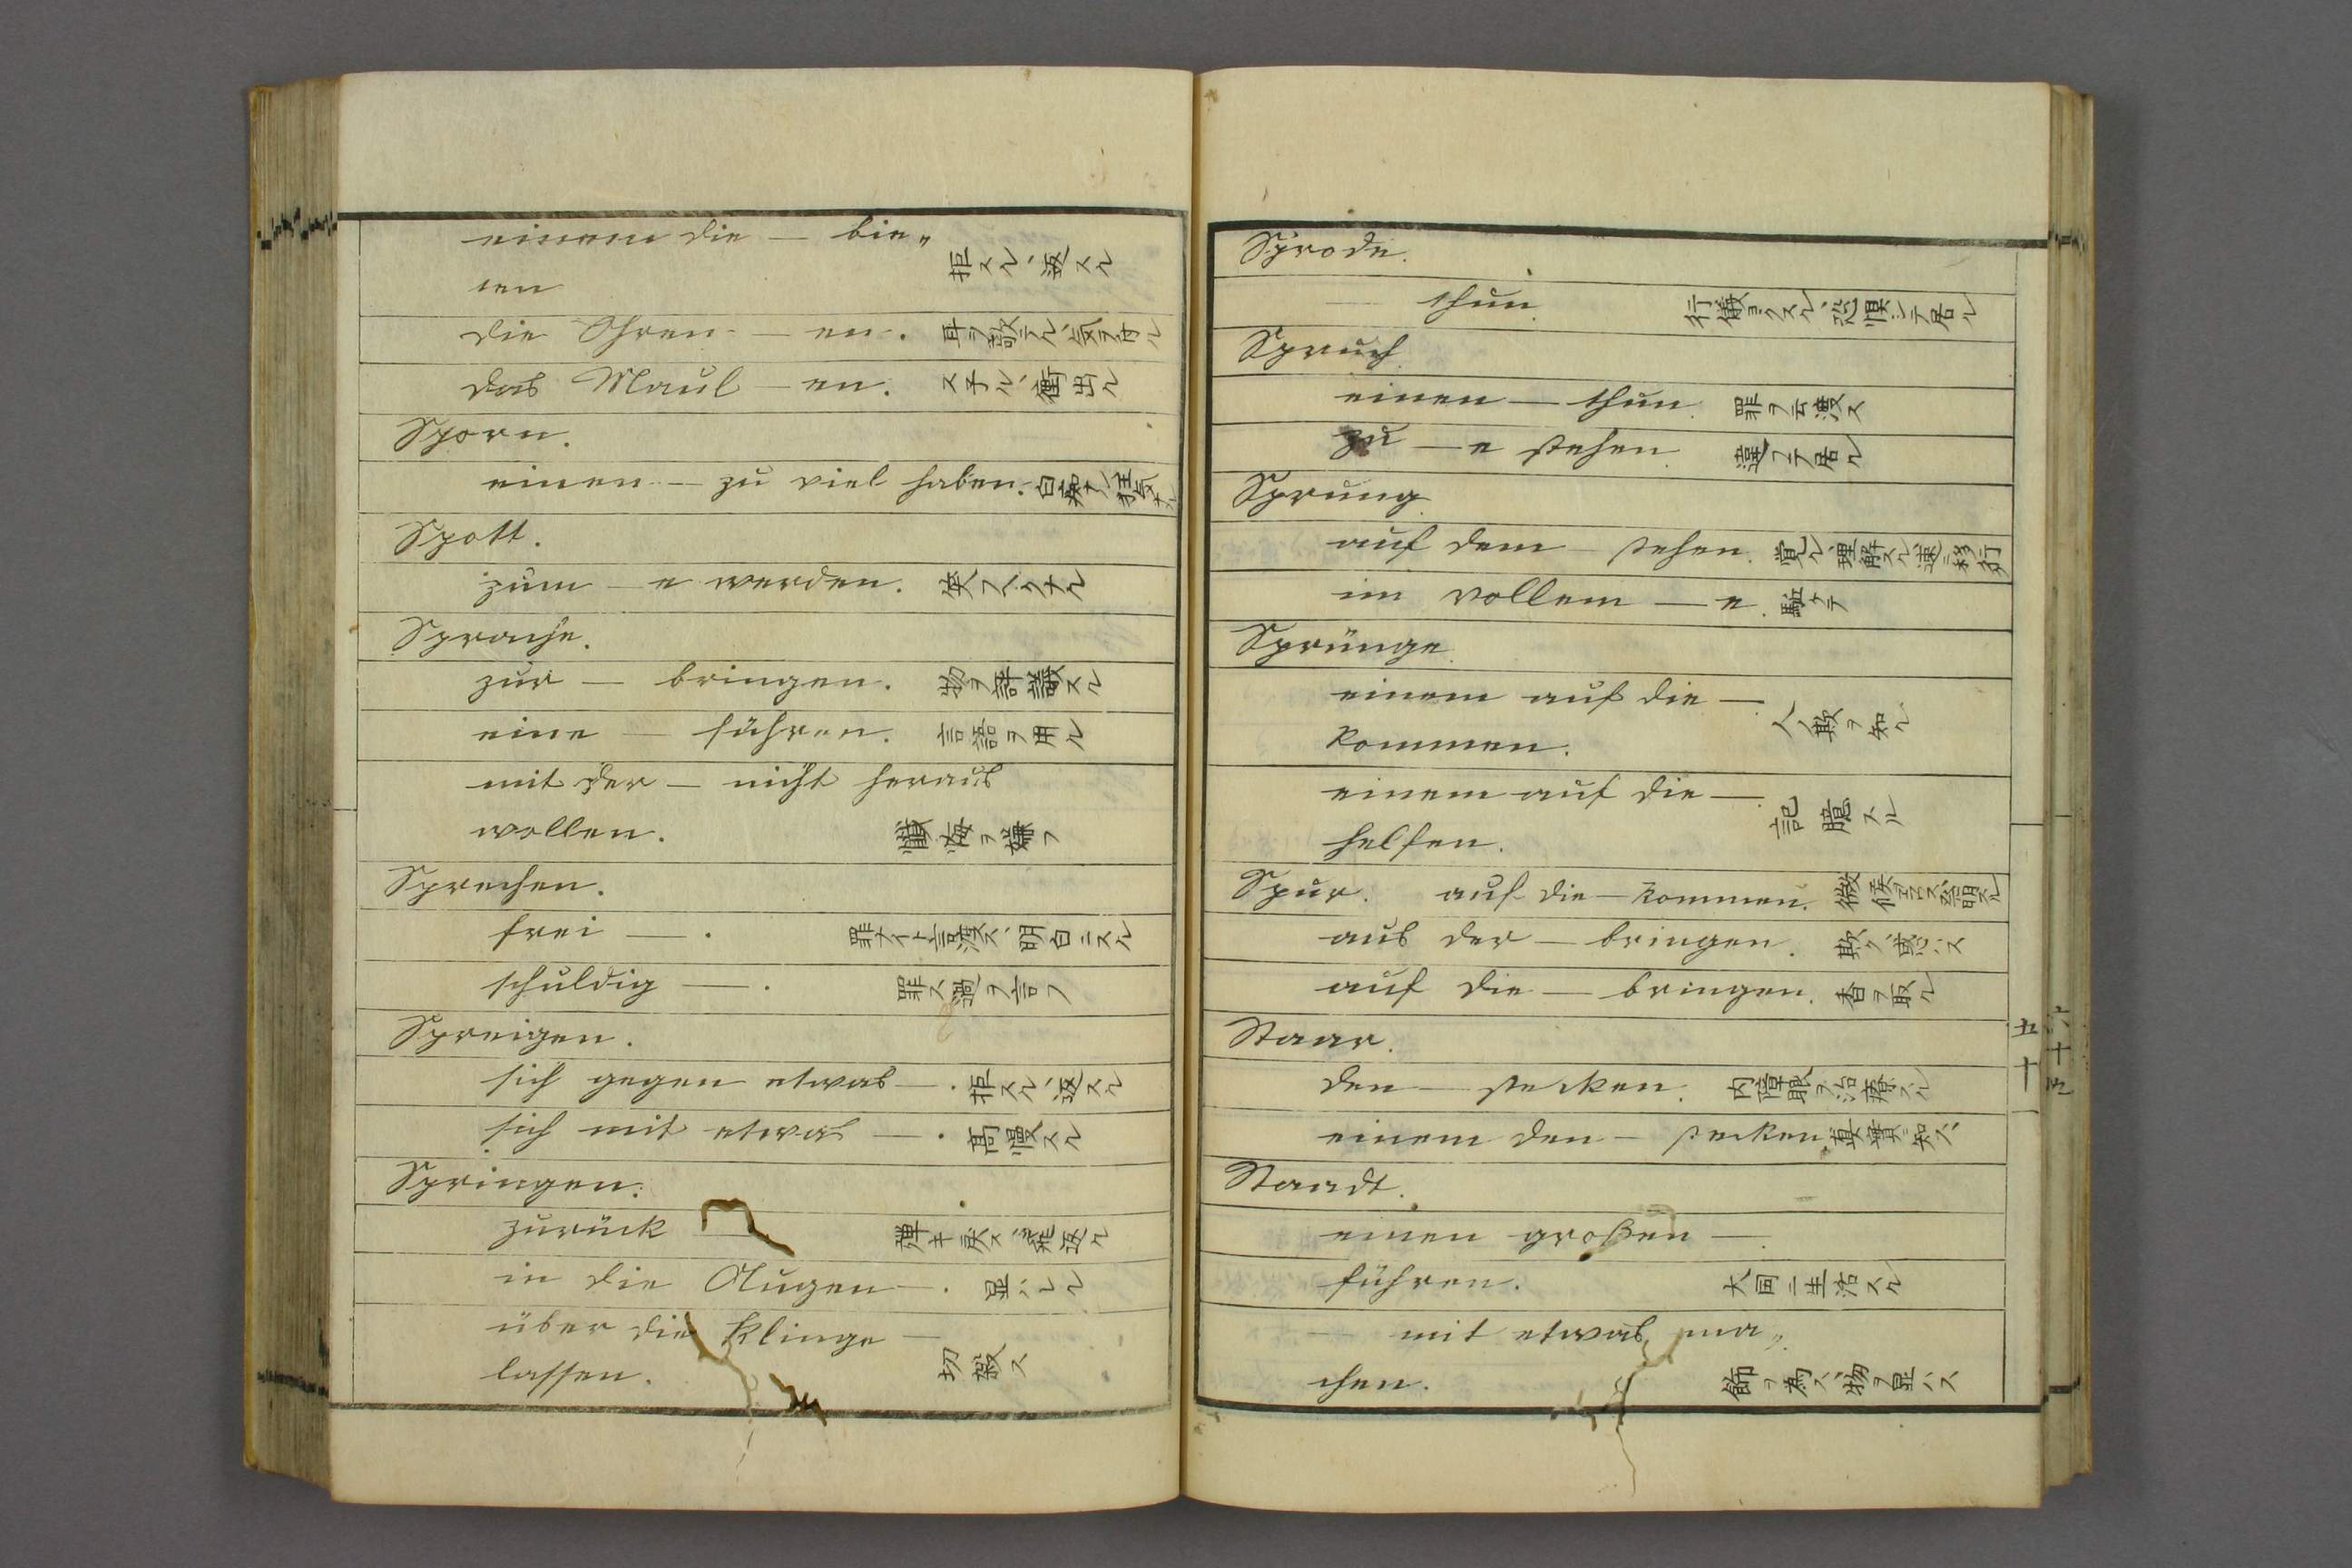 einem die — bie„
ten 拒スル、返スル
die Ohren — en. 耳ヲ欹テル、気ヲ付ル
das Maul — en. 衝出ル
Sporn.
einen — zu viel haben.
Spott.
zum — e werden. 笑フベクナル
Sprache.
zur — bringen. 物ヲ評議スル
eine — führen. 言語ヲ用ル
mit der — nicht heraus
wollen. 懺悔ヲ嫌フ
Sprechen.
frei — . 罪ナイト言渡ス、明白ニスル
schuldig — . 罪ス過ヲ言フ
Spreizen.
sich gegen etwas — . 拒スル、返スル
sich mit etwas — . 高慢スル
Springen.
zurück — 弾キ戻ス、飛返ル
in die Augen — . 显ハレル
über die Klinge —
lassen. 切殺ス
Spröde.
— thun. 行儀ヨクスル、恐惧シテ居ル
Spruch.
einen — thun. 罪ヲ云渡ス
zu — e stehen. 違フテ居ル
Sprung.
auf dem — stehen. 覚ル、理解スル、速ニ移行
im vollem — e. 駈ケテ
Sprünge.
einem auf die — .
kommen. 人ノ欺ヲ知ル
einem auf die — .
helfen. 記臆スル
Spur. auf die — kommen.
aus der — bringen. 欺ク、惑ハス
auf die — bringen. 香ヲ取ル
Staar.
den — stecken. 内障眼ヲ治療スル
einem den — stecken. 真實ヲ知ス
Staadt.
einen großen — .
führen. 大同ニ生活スル
— mit etwas ma„
chen. 飾ヲ為ス、物ヲ显ハス
五十一